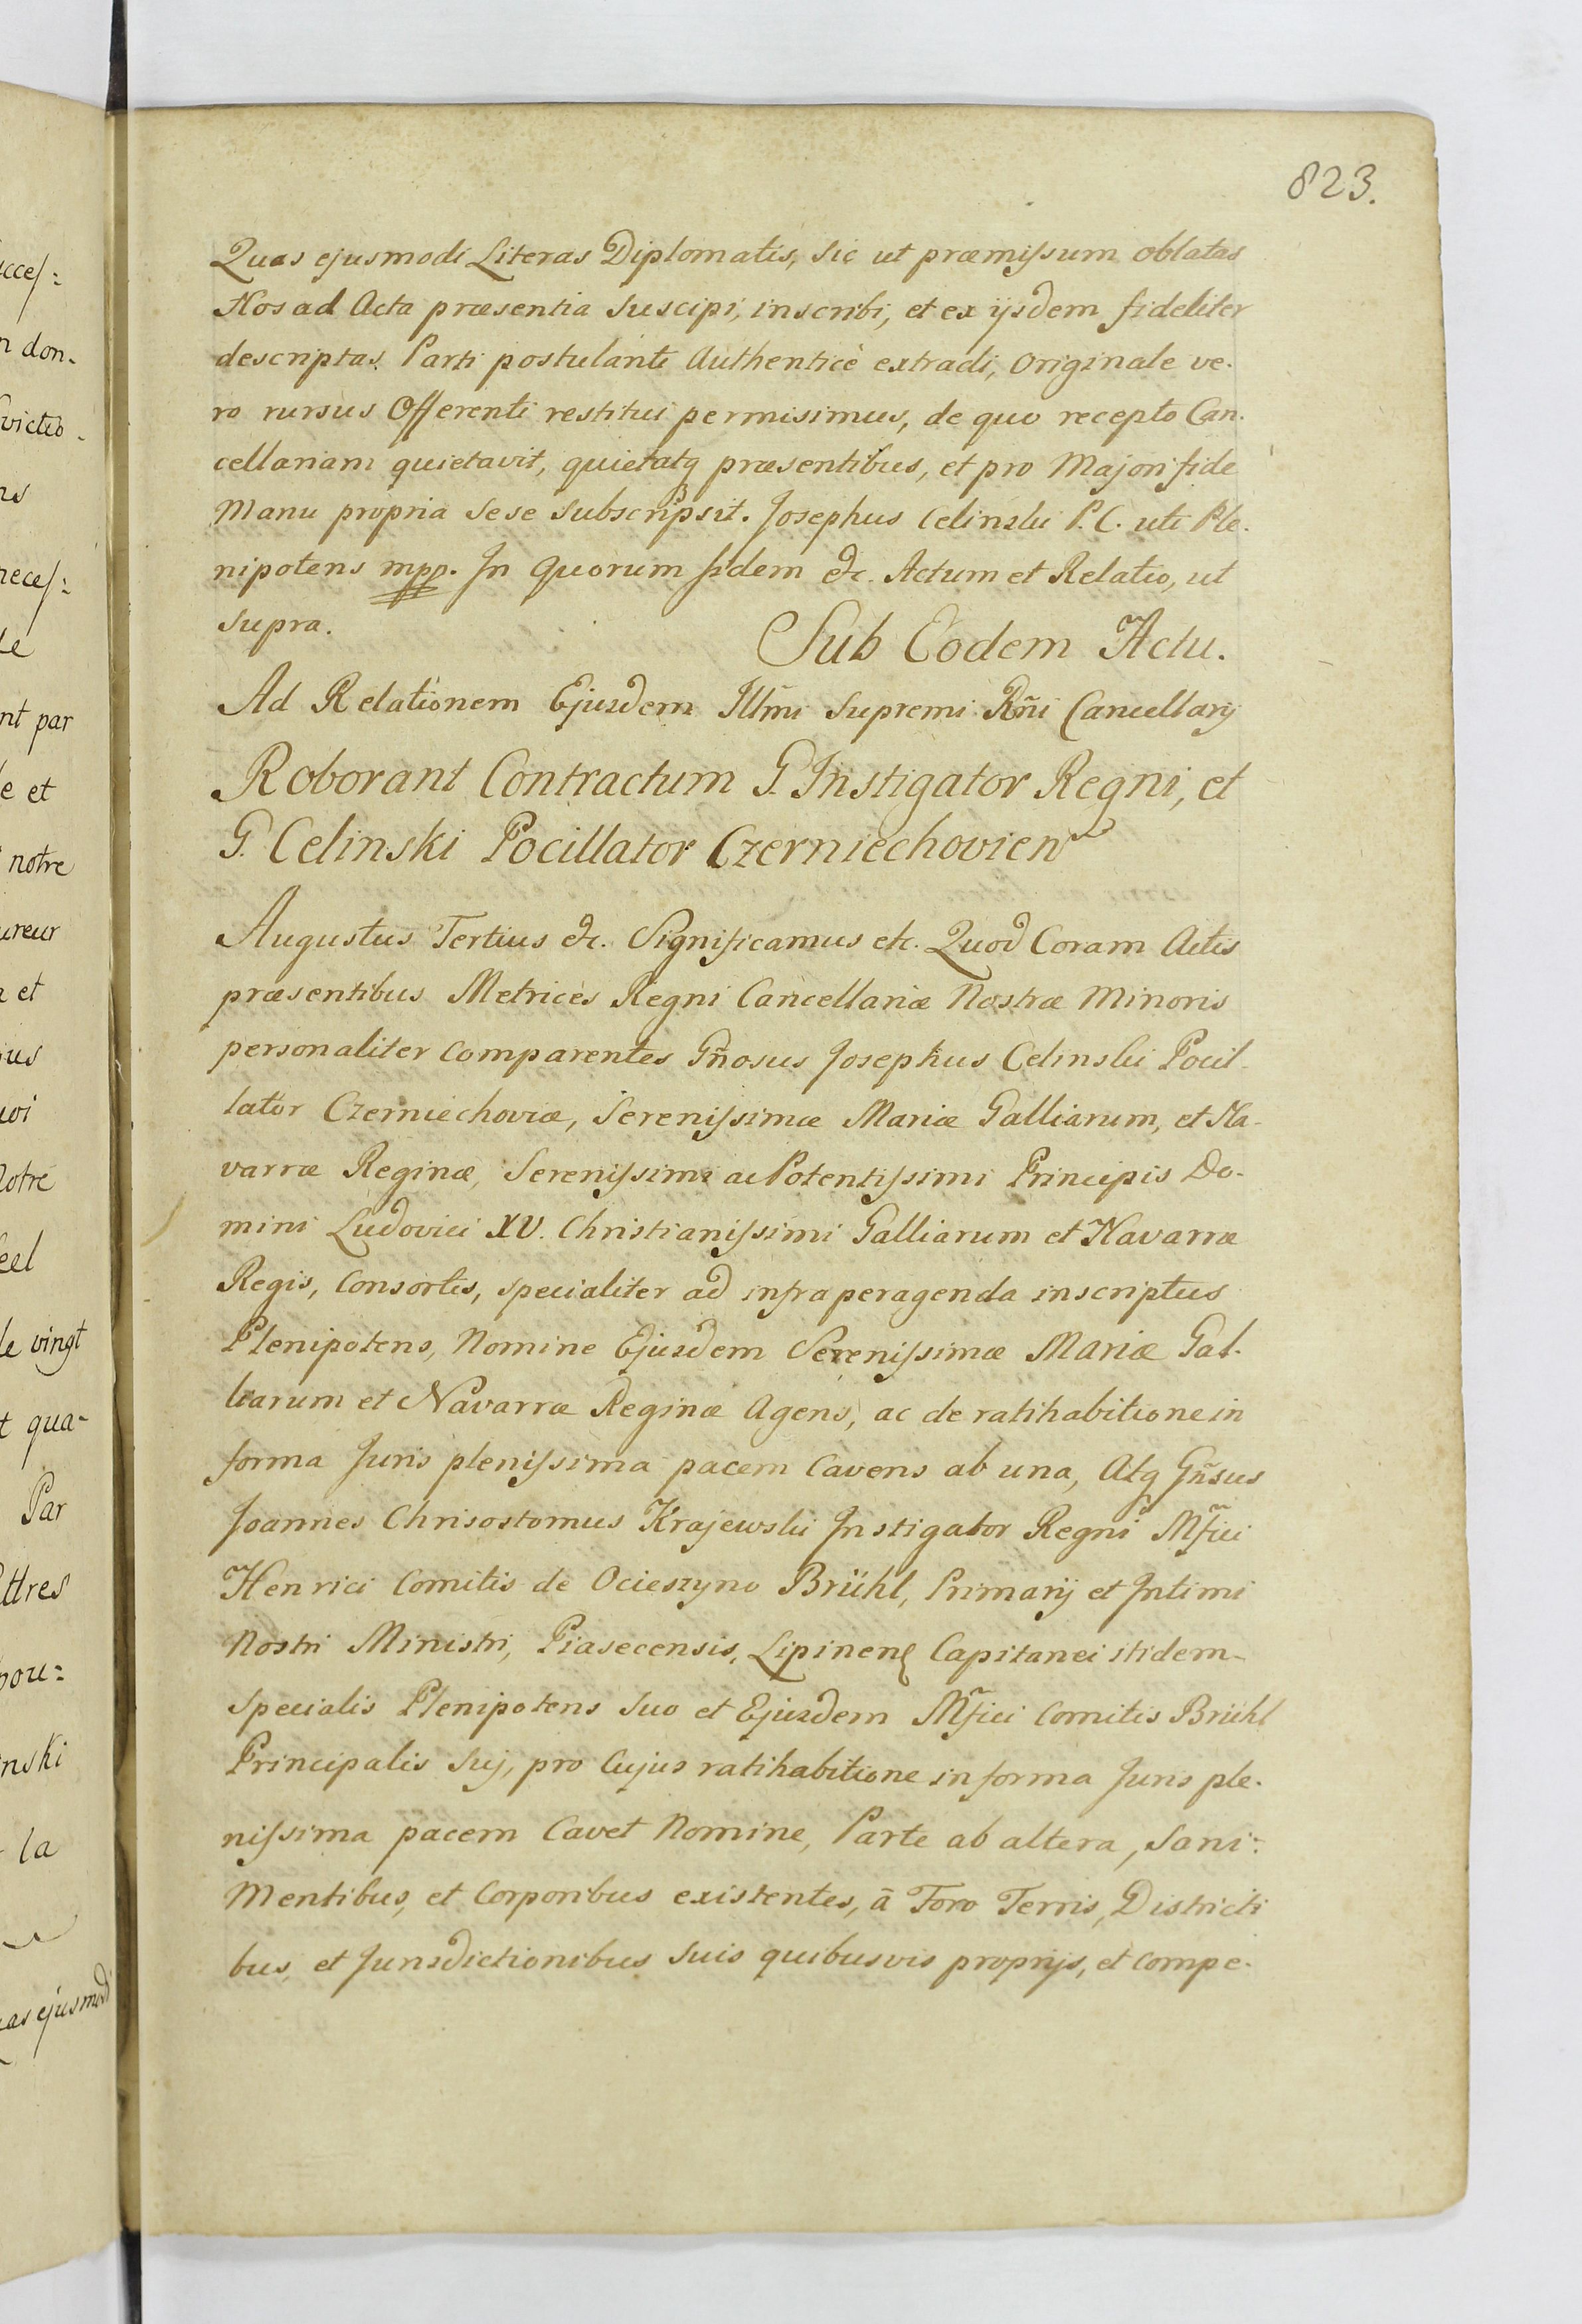 823.
Quas ejusmodi Literas Diplomatis, sic ut præmissum oblatas
Nos ad Acta præsentia suscipi, inscribi, et ex ijsdem fideliter
descriptas Parti postulanti Authenticè extradi, Originale ve-
ro rursus Offerenti restitui permisimus, de quo recepto Can-
cellariam quietavit, quietatq præsentibus, et pro Majori fide
Manu propria sese subscripsit. Josephus Celinski P. C. uti Ple-
nipotens mpp. In quorum fidem &c. Actum et Relatio, ut
supra.
Sub Eodem Actu.
Ad Relationem Ejusdem Illm̃i Supremi Rñi Cancellarij
Roborant Contractum G. Instigator Regni, et
G. Celinski Pocillator Czerniechovien
Augustus Tertius &c. Significamus etc. Quod Coram Actis
præsentibus Metrices Regni Cancellariæ Nostræ Minoris
personaliter comparentes Gñosus Josephus Celinski Pocil-
lator Czerniechoviæ, Serenissimæ Mariæ Galliarum, et Na-
varræ Reginæ, Serenissimi ac Potentissimi Principis Do-
mini Ludovici XV. Christianissimi Galliarum et Navarræ
Regis, Consortis, specialiter ad infra peragenda inscriptus
Plenipotens, Nomine Ejusdem Serenissimæ Mariæ Gal-
liarum et Navarræ Reginæ Agens, ac de ratihabitione in
forma Juris plenissima pacem Cavens ab una, Atq Gñsus
Joannes Chrisostomus Krajewski Instigator Regni Mf̃ici
Henrici Comitis de Ocieszyno Brühl, Primarij et Intimi
Nostri Ministri, Piasecensis, Lipinen Capitanei itidem
specialis Plenipotens suo et Ejusdem Mf̃ici Comitis Brühl
Principalis Sui, pro Cujus ratihabitione in forma Juris ple-
nissima pacem Cavet Nomine, Parte ab altera, Sani:
Mentibus, et Corporibus existentes, ā Foro Terris, Districti
bus, et Jurisdictionibus suis quibusvis proprijs, et Compe-